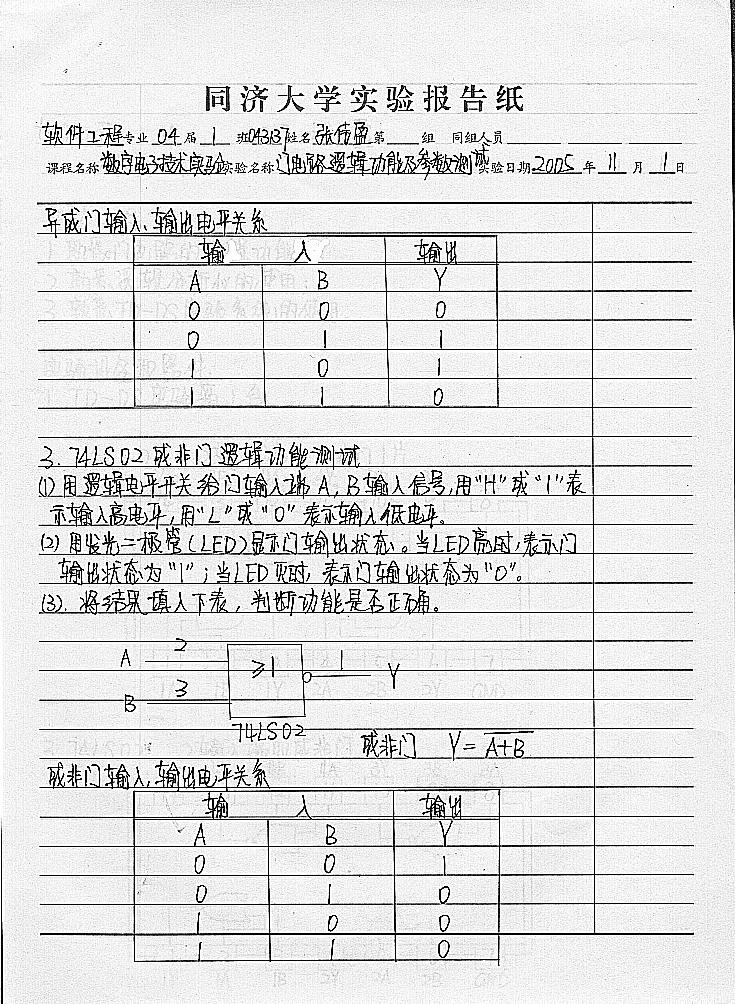 同济大学实验报告纸
软件工程专业 04 届 1 班 043137 姓名 张伟盈 第 组 同组人员
课程名称 数字电子技术实验 实验名称 门电路逻辑功能及参数测试 实验日期 2005 年 11 月 1 日
异或门输入、输出电平关系
输 入 输出
A B Y
0 0 0
0 1 1
1 0 1
1 1 0
3. 74LS02 或非门逻辑功能测试
(1) 用逻辑电平开关给门输入端 A, B 输入信号,用“H”或“1”表
示输入高电平,用“L”或“0”表示输入低电平。
(2) 用发光二极管(LED)显示门输出状态。当LED亮时,表示门
输出状态为“1”;当LED灭时,表示门输出状态为“0”。
(3). 将结果填入下表,判断功能是否正确。
A 2 ≥1 1 Y
B 3
74LS02
或非门 Y = \overline{A+B}
或非门输入、输出电平关系
输 入 输出
A B Y
0 0 1
0 1 0
1 0 0
1 1 0